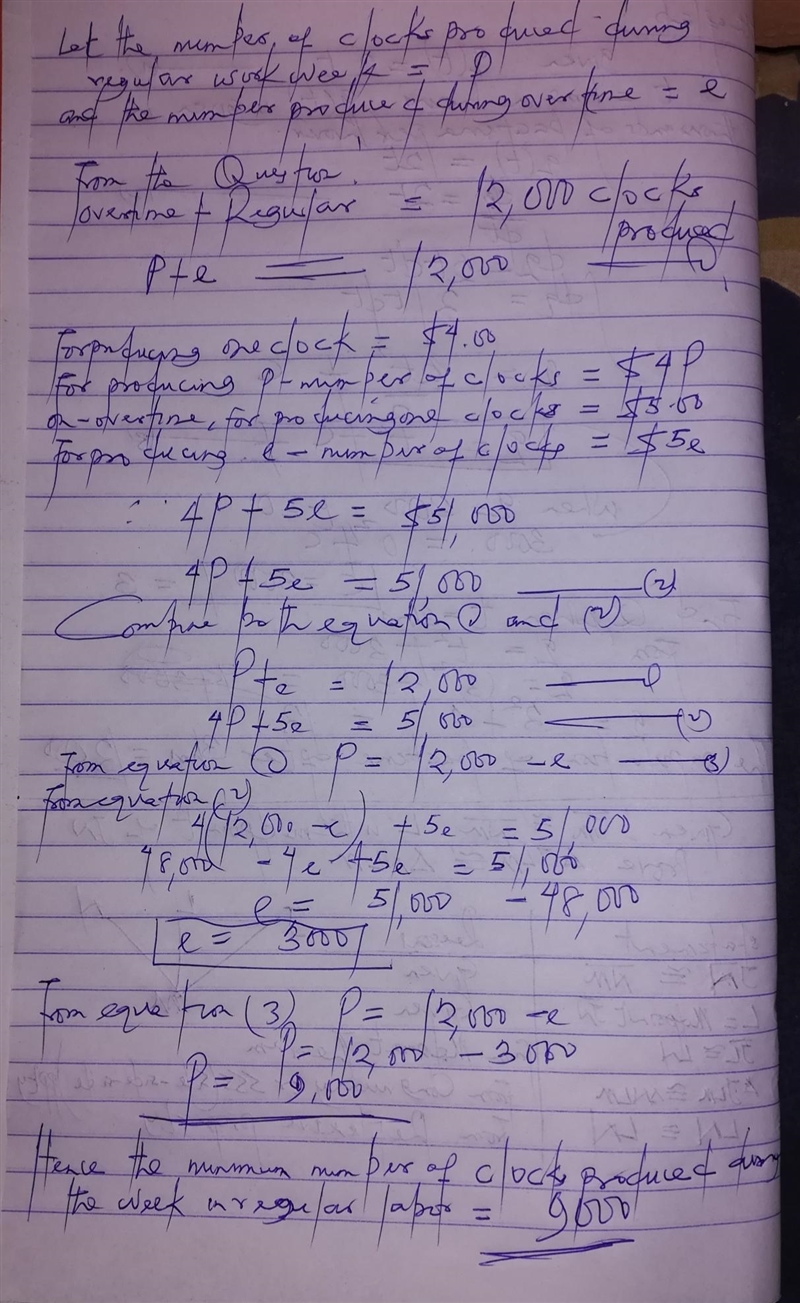 Let the number of clocks produced during
regular work week = P
and the number produced during overtime = e
From the Question.
overtime + Regular = 12,000 clocks
produced
P+e = 12,000 (1)
For producing one clock = $4.00
For producing P-number of clocks = $4P
on-overtime, for producing one clocks = $5.00
For producing e-number of clocks = $5e
∴ 4P + 5e = $51,000
4P + 5e = 51,000 (2)
Combine both equation (1) and (2)
P+e = 12,000 (1)
4P+5e = 51,000 (2)
From equation (1) P = 12,000 - e (3)
From equation (2)
4(12,000 - e) + 5e = 51,000
48,000 - 4e + 5e = 51,000
e = 51,000 - 48,000
e = 3000
From equation (3) P = 12,000 - e
P = 12,000 - 3000
P = 9,000
Hence the minimum number of clocks produced during
the week in regular labor = 9000